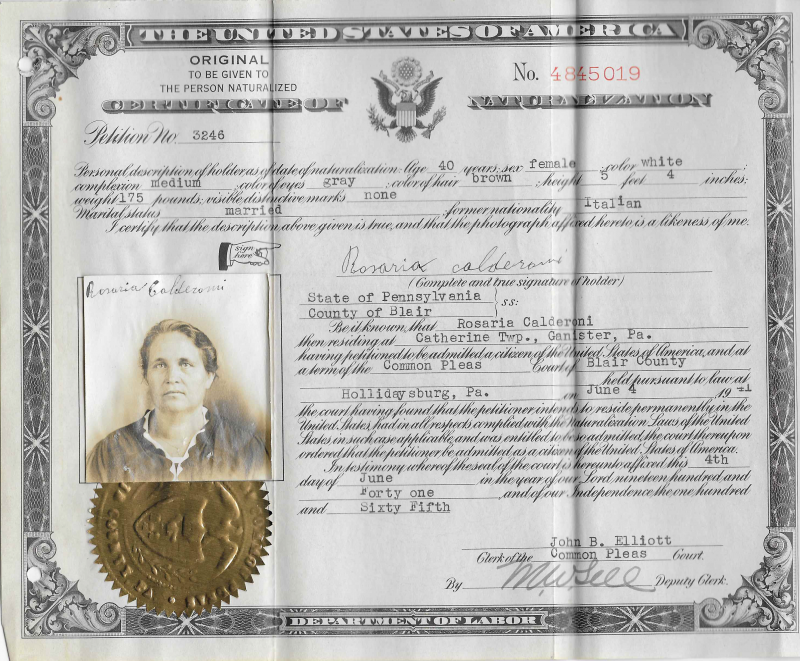 THE UNITED STATES OF AMERICA
ORIGINAL
TO BE GIVEN TO
THE PERSON NATURALIZED
No. 4845019
CERTIFICATE OF NATURALIZATION
Petition No 3246
Personal description of holder as of date of naturalization: Age 40 years; sex female ; color white ;
complexion medium ; color of eyes gray ; color of hair brown ; height 5 feet 4 inches;
weight 175 pounds; visible distinctive marks none
Marital status married ; former nationality Italian
I certify that the description above given is true, and that the photograph affixed hereto is a likeness of me.
sign here
Rosaria Calderoni
(Complete and true signature of holder)
Rosaria Calderoni
State of Pennsylvania
County of Blair
ss:
Be it known, that Rosaria Calderoni
then residing at Catherine Twp., Ganister, Pa.
having petitioned to be admitted a citizen of the United States of America, and at
a term of the Common Pleas Court of Blair County
held pursuant to law at
Hollidaysburg, Pa. on June 4 1941
the court having found that the petitioner intends to reside permanently in the
United States, had in all respects complied with the Naturalization Laws of the United
States in such case applicable, and was entitled to be so admitted, the court thereupon
ordered that the petitioner be admitted as a citizen of the United States of America.
In testimony whereof the seal of the court is hereunto affixed this 4th
day of June in the year of our Lord nineteen hundred and
Forty one , and of our Independence the one hundred
and Sixty Fifth
John B. Elliott
Clerk of the Common Pleas Court.
By Deputy Clerk.
DEPARTMENT OF LABOR